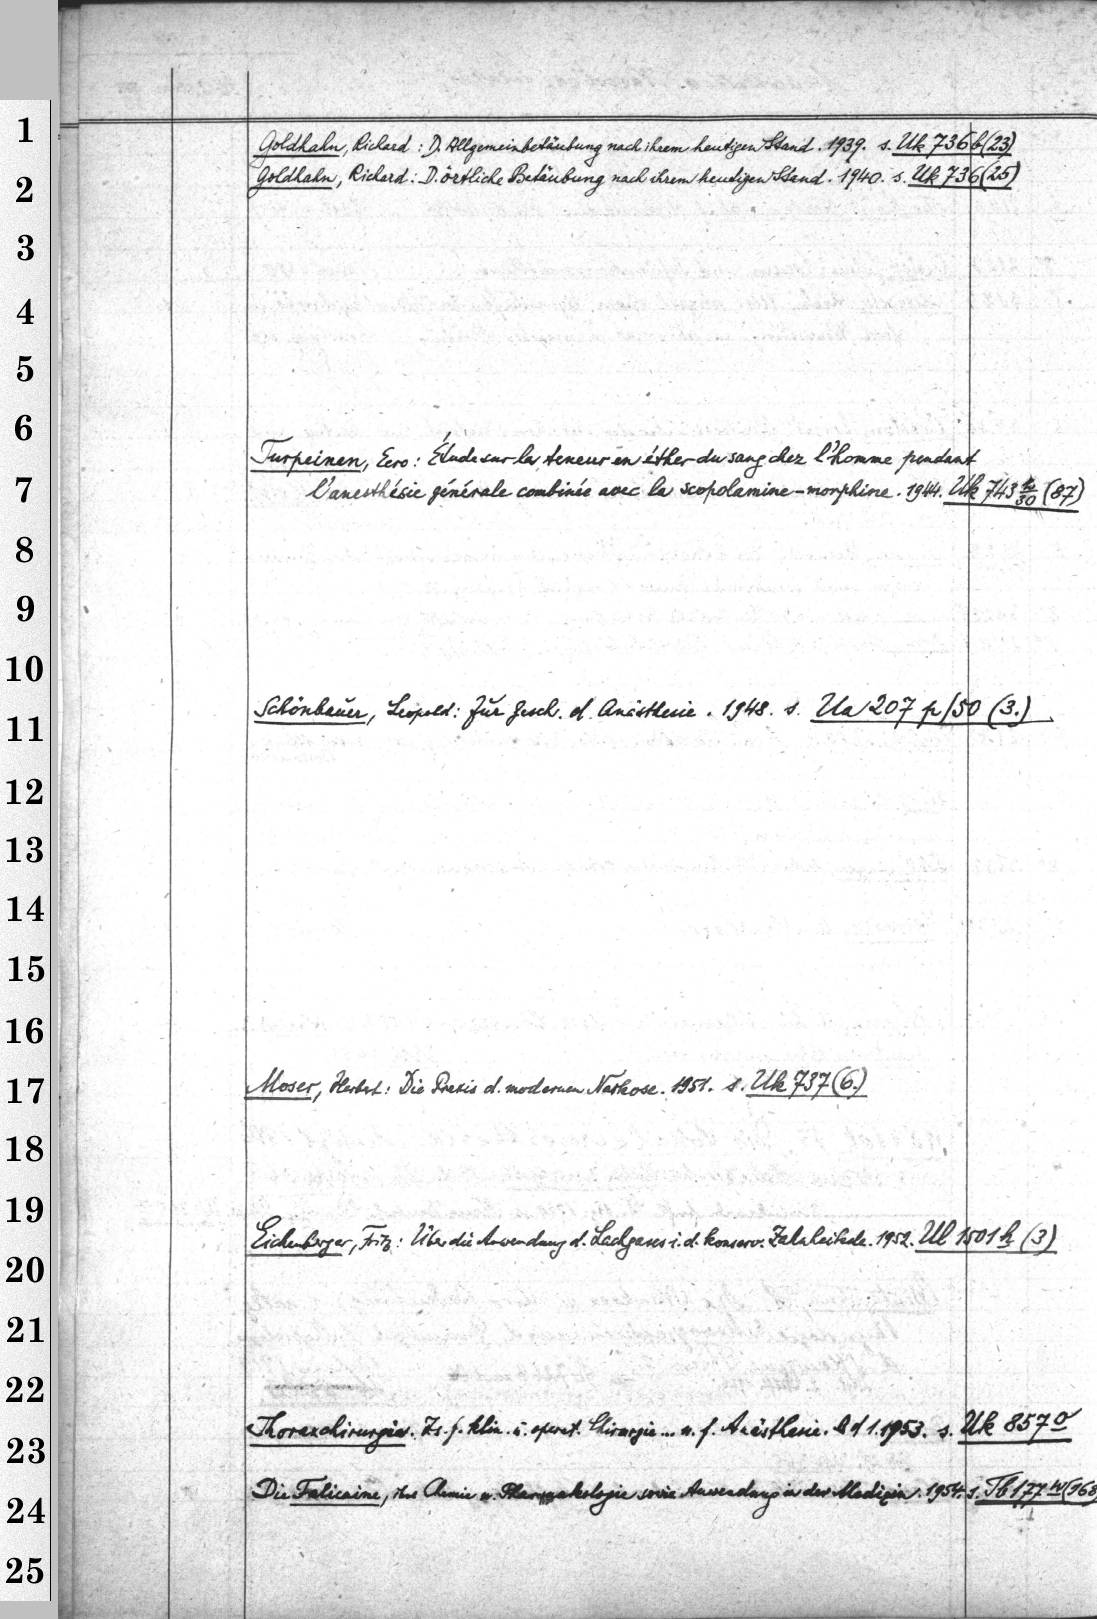 1
2
3
4
5
6
7
8
9
10
11
12
13
14
15
16
17
18
19
20
21
22
23
24
25
Goldhahn, Richard: D. Allgemeinbetäubung nach ihrem heutigen Stand. 1939. s. Uk 736 b (23)
Goldhahn, Richard: D. örtliche Betäubung nach ihrem heutigen Stand. 1940. s. Uk 736 (25)
Turpeinen, Eero: Étude sur la teneur en éther du sang chez l'homme pendant
l'anesthésie générale combinée avec la scopolamine-morphine. 1944. Uk 743 k/30 (87)
Schönbauer, Leopold: Zur Gesch. d. Anästhesie. 1948. s. Ua 207 p/50 (3.)
Moser, Herbert: Die Praxis d. modernen Narkose. 1951. s. Uk 737 (6.)
Eichenberger, Fritz: Über die Anwendung d. Lachgases i. d. konserv. Zahnheilkde. 1952. Ul 1501 h (3)
Thoraxchirurgie. Zs. f. klin. u. operat. Chirurgie ... u. f. Anästhesie. Bd 1. 1953. s. Uk 857 o
Die Falicaine, ihre Chemie u. Pharmakologie sowie Anwendung in der Medizin. 1954. s. Tb 177 w (168)